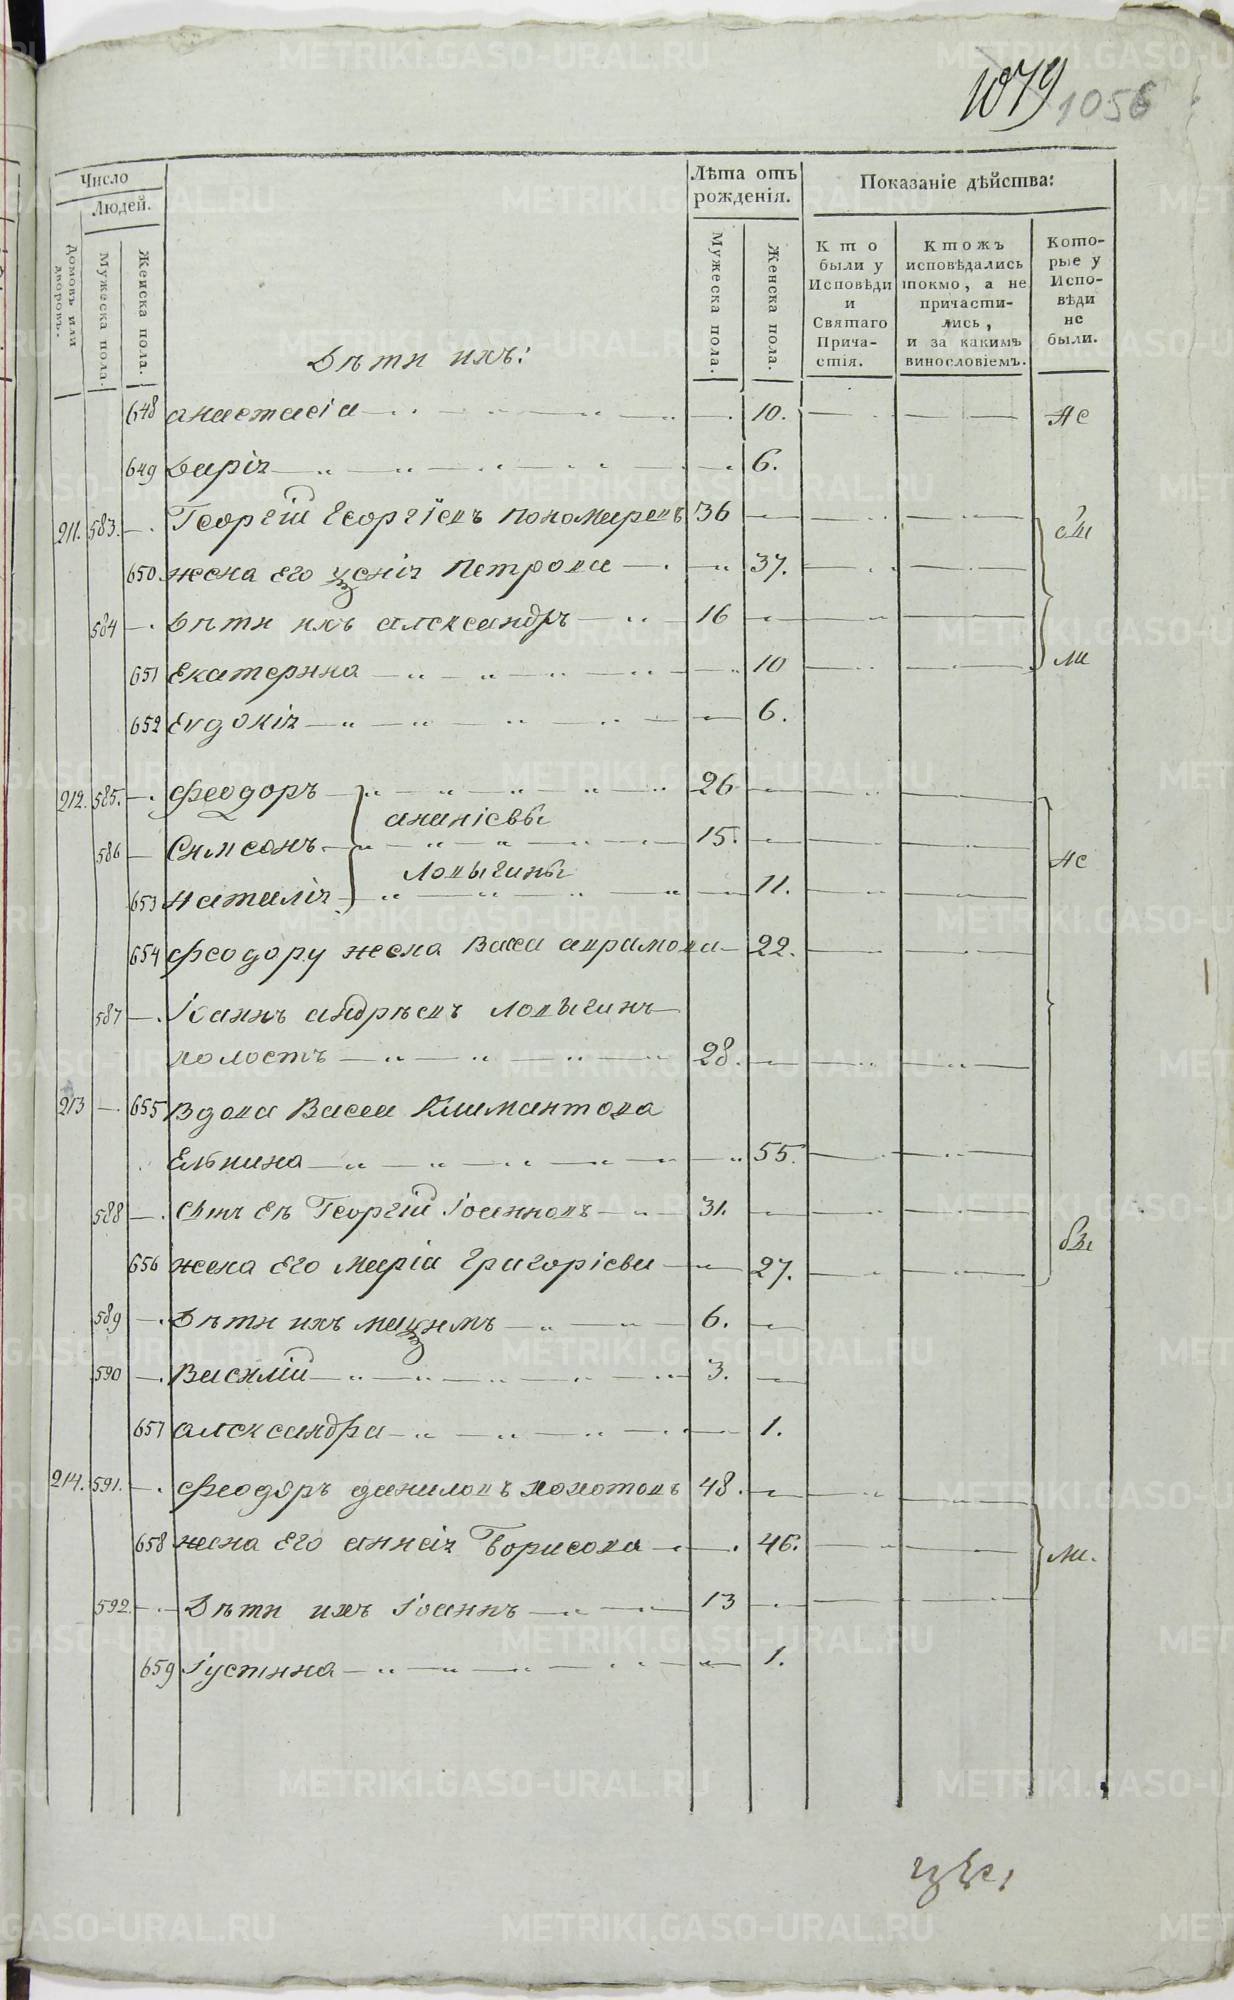 1079 1056
Число
Людей.
Домовъ или дворовъ.
Мужеска пола.
Женска пола.
Лѣта отъ рожденія.
Мужеска пола.
Женска пола.
Показаніе дѣйства:
Кто были у Исповѣди и Святаго Прича-стія.
Ктожъ исповѣдались токмо, а не причасти-лись, и за какимъ винословіемъ.
Кото-рые у Испо-вѣди не были.
Дѣти ихъ:
648 Анастасіа 10. Не
649 Даріа 6.
211. 583. Георгій Георгіевъ Пономаревъ 36
650. жена его Ѯенія Петрова 37.
584 Дѣти ихъ Александръ 16
651 Екатерина 10 ли
652 Евдокіа 6.
212. 585. Феодоръ 26
Ананіевы
586 Симеонъ 15. не
Лопыгины
653 Наталіа 11.
654 Феодору жена Васса Авраамова 22.
587 Іоаннъ Андрѣевъ Лопыгинъ
холостъ 28.
213 655 Вдова Васса Климантова
Елькина 55.
588 Сынъ еѣ Георгій Іоанновъ 31.
656 жена его Маріа Григоріева 27. бы
589 Дѣти ихъ Маѯимъ 6.
590 Василій 3.
657 Александра 1.
214. 591. Феодоръ Даниловъ Хохотовъ 48.
658 жена его Аннсіа Борисова 46. ли.
592. Дѣти ихъ Іоаннъ 13
659 Іустина 1.
METRIKI.GASO-URAL.RU